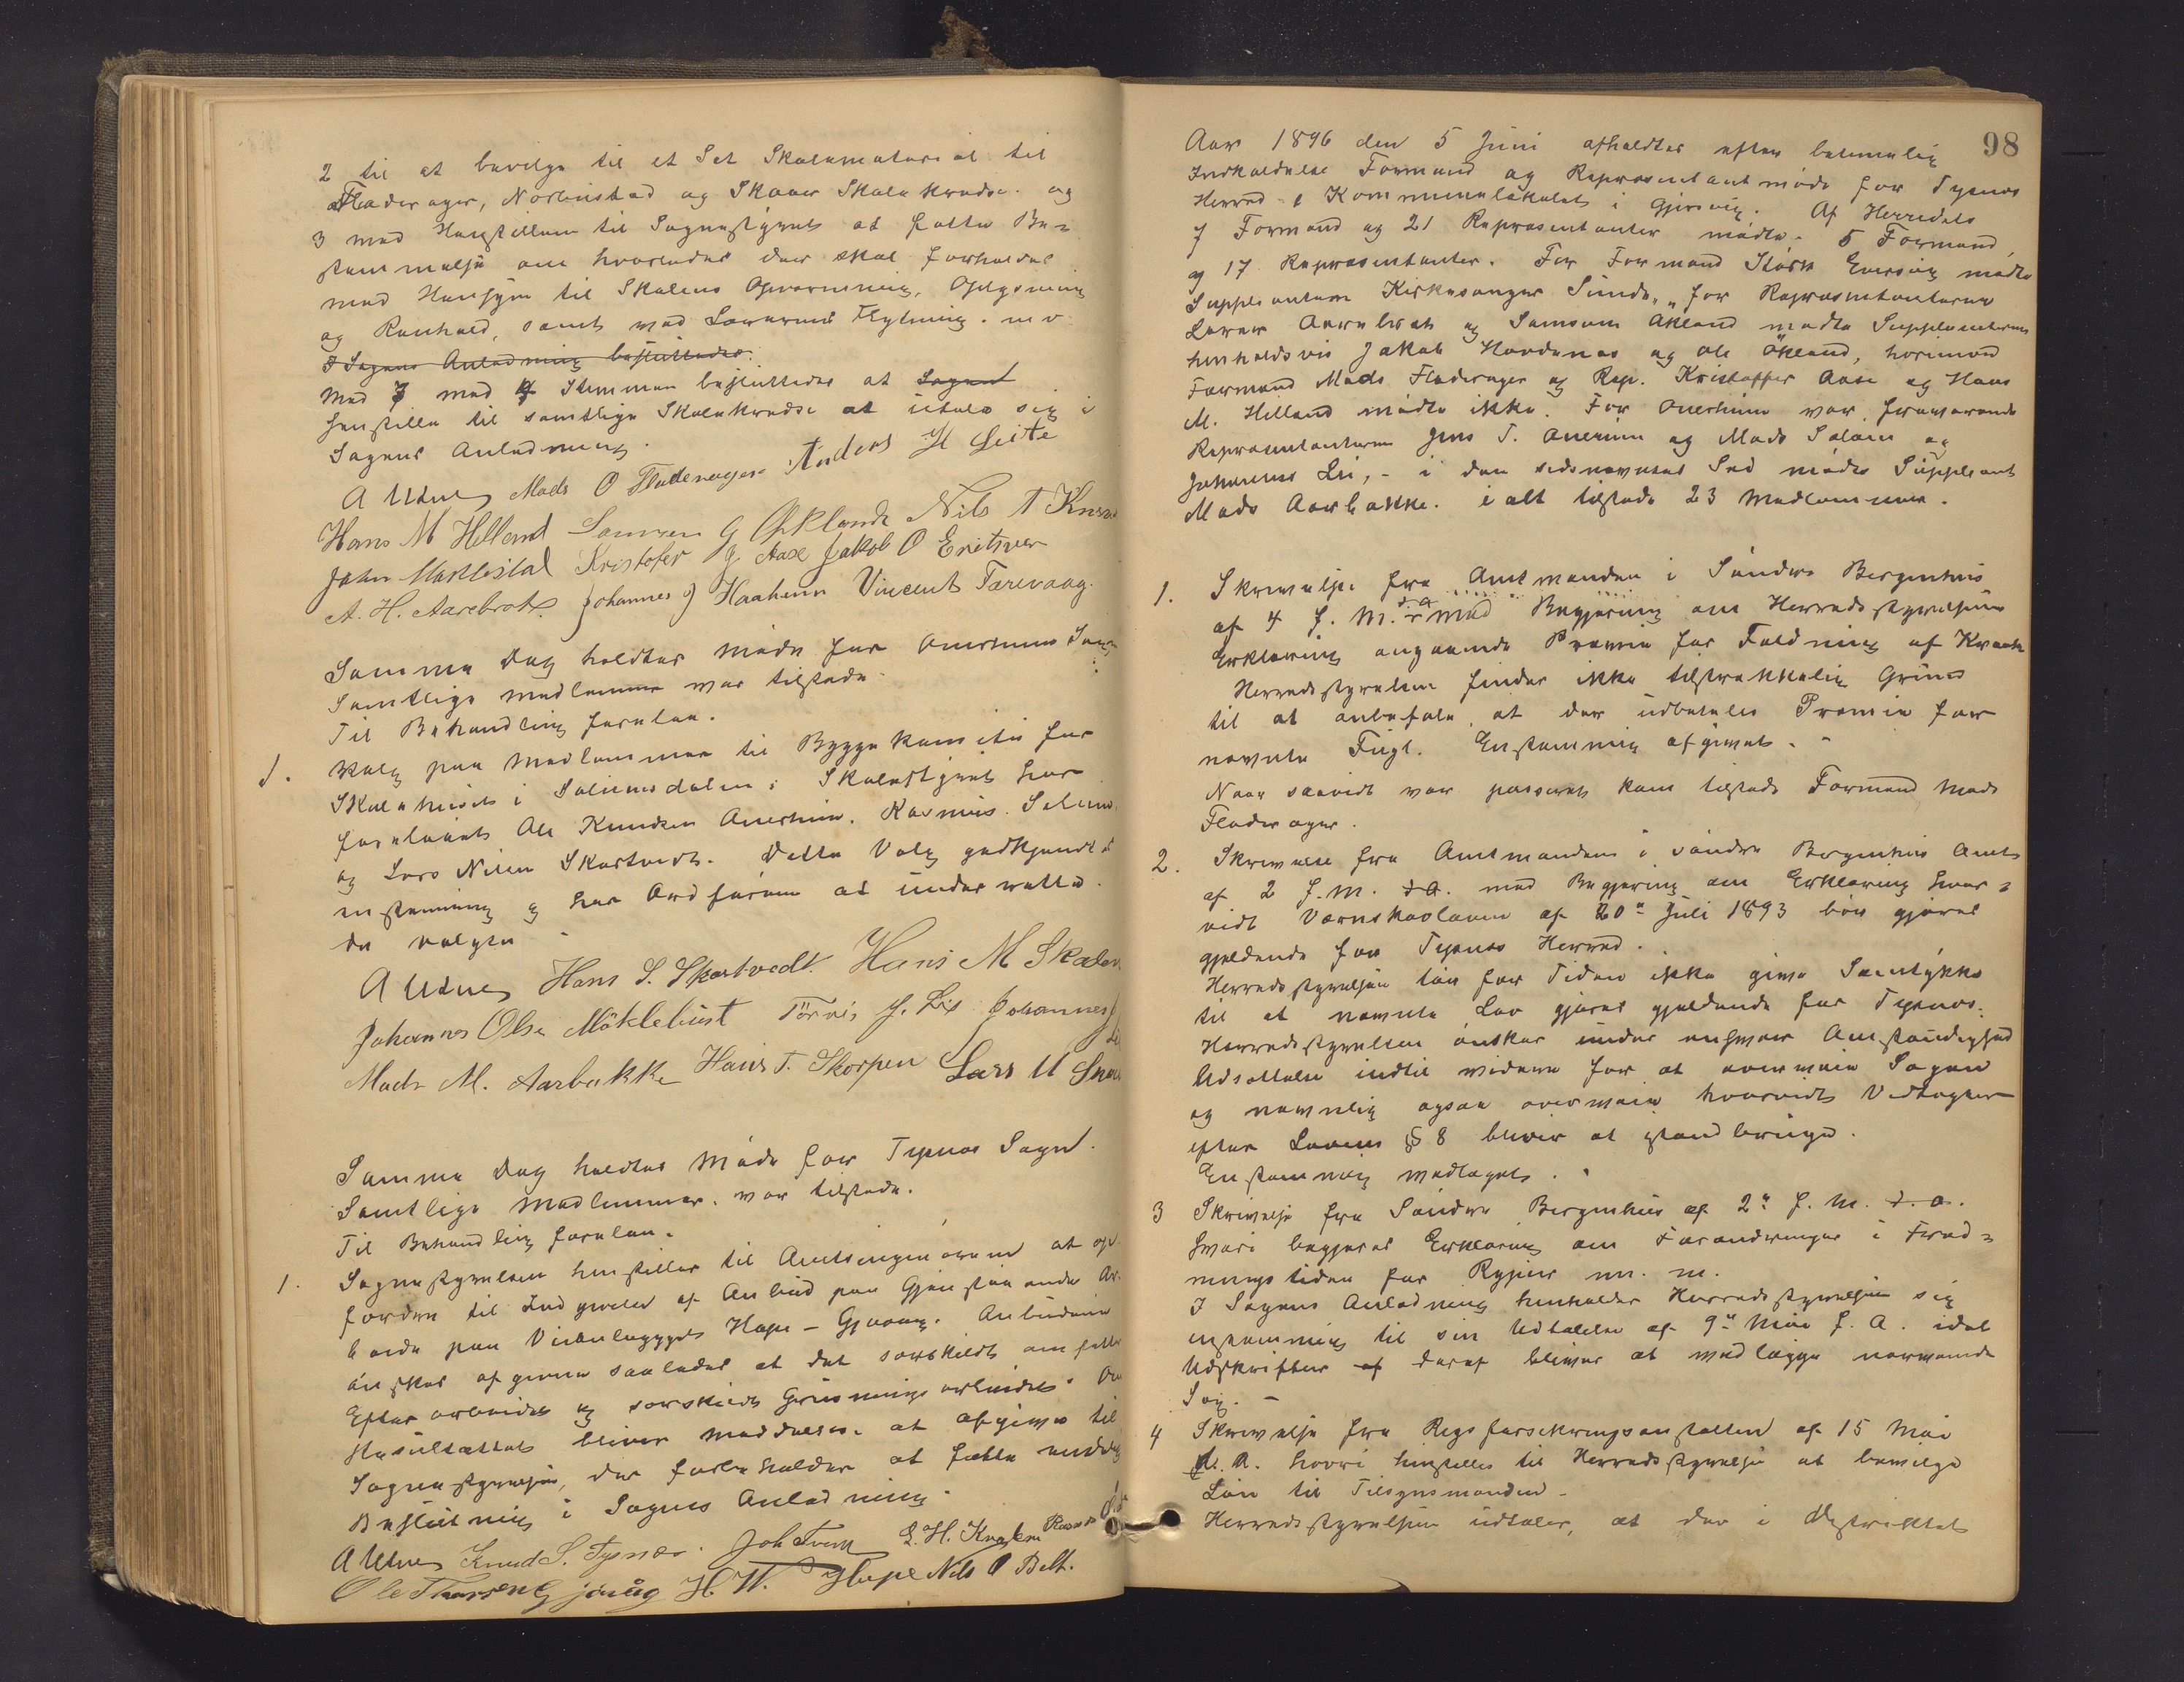 2 til at bevilge til et Set Skolemateriel til
Fladerager, Norbustad og Skaar Skolekredse. og
3 med Henstillen til Sognestyret at fatte Be-
stemmelse om hvorledes der skal forholdes
med Hensyn til Skolens Opvarmning,
og Renhold, samt med Lærerens Flytning. m v
I Sagens Anledning besluttedes.
Med 7 mod 4 Stemmer besluttedes at Sagen
henstille til samtlige Skolekredse at udtale sig i
Sagens Anledning.
A Udnes Mads O Fladerager Anders H Leite
Hans M Helland Samson G Økland Nils A
John Kristofer J Aase Jakob O
A. H. Aarebrot Johannes J Haaheim Vincent Tærevaag.
Samme Dag holdtes Møde for Onerheims Sogn
Samtlige Medlemmer var tilstede.
Til Behandling forelaa.
1. Valg paa Medlemmer til Byggekomite for
Skolehuset i Solumsdalen; Skolestyret har
foreslaaet Ole Knudsen Onerheim, Rasmus
og Lars Nilsen Skartvedt. Dette Valg godkjendtes
enstemmig og har Ordføreren at underrette
de valgte
A Udnes Hans S. Skartvedt Hans M
Johannes Olsen Møklebust J. Lie Johannes J
Mads M. Aarbakke Hans T. Skorpen Lars M
Samme Dag holdtes Møde for Tysnes Sogn.
Samtlige Medlemmer var tilstede.
Til Behandling forelaa.
1. Sognestyrelsen henstiller til Amtsingeniøren at op-
fordre til Indgivelse af Anbud paa Gjenstaaende Ar-
beide paa Veianlægget Hope - Gjøvaag. Anbudene
ønskes afgivne saaledes at det særskildt omfatter
Efterarbeidet og særskildt Grusningsarbeidet. Om
Resultattet bliver Meddelelse at afgives til
Sognestyrelsen, der forbeholder at fatte endelig
Beslutning i Sagens Anledning.
A Udnes Knud S. Tysnes. Joh Tveit
Ole Thorsen Gjøvåg H. H. Hope Nils O Belt.
98
Aar 1896 den 5 Juni afholdtes efter betimelig
Indkaldelse Formand og Repræsentantmøde for Tysnes
Herred i Kommunelokalet i Gjersvig. Af Herredets
7 Formænd og 21 Repræsentanter mødte 5 Formænd,
og 17 Repræsentanter. For Formand Stark Enersvig mødte
Suppleanten Kirkesanger Sunde, for Repræsentanterne
Lærer Aarebrot og Samson Økland mødte Suppleanterne
henholdsvis Jakob Hovdenes og Ole Økland, hvorimod
Formand Mads Fladerager og Rep. Kristoffer Aase og Hans
M. Helland mødte ikke. For Onerheim var fraværende
Repræsentanterne Jens T. Onerheim og Mads og
Johannes Lie, - i den sidsnævntes Sted mødte Suppleant
Mads Aarbakke. i alt tilstede 23 Medlemmer.
1. Skrivelse fra Amtmanden i Søndre Bergenhus
af 4 f. M. d.a med Begjæring om Herredsstyrelsens
Erklæring angaaende Præmie for Fældning af
Herredsstyrelsen finder ikke tilstrækkelig Grund
til at anbefale, at der udbetales Præmie for
nævnte Fugl. Enstemmig afgivet. -
Naar saavidt var passeret kom tilstede Formand Mads
Fladerager.
2. Skrivelse fra Amtmanden i Søndre Bergenhus Amt
af 2 f.M. d.A. med Begjæring om Erklæring hvor-
vidt Værnskovloven af 20de Juli 1893 bør gjøres
gjældende for Tysnes Herred.
Herredsstyrelsen tør for Tiden ikke give Samtykke
til at nævnte Lov gjøres gjældende for Tysnes.
Herredsstyrelsen ønsker under enhver Omstændighed
Udsættelse indtil videre for at overveie Sagen
og navnlig ogsaa overveie hvorvidt Vedtægter
efter Lovens § 8 bliver at istandbringe.
Enstemmig vedtaget.
3 Skrivelse fra Søndre Bergenhus af 2de f. M. d. a.
hvori begjæres Erklæring om Forandringer i Fred-
ningstiden for Ryper m. m.
I Sagens Anledning henholder Herredsstyrelsen sig
enstemmig til sin Udtalelse af 9de Mai f. A. idet
Udskrifter af deraf bliver at vedlægge nærværende
Sag. -
4 Skrivelse fra Rigsforsikringsanstalten af 15 Mai
d. A. hvori henstilles til Herredsstyrelsen at bevilge
Løn til Tilsynsmanden -
Herredsstyrelsen udtaler, at der i Distriktet